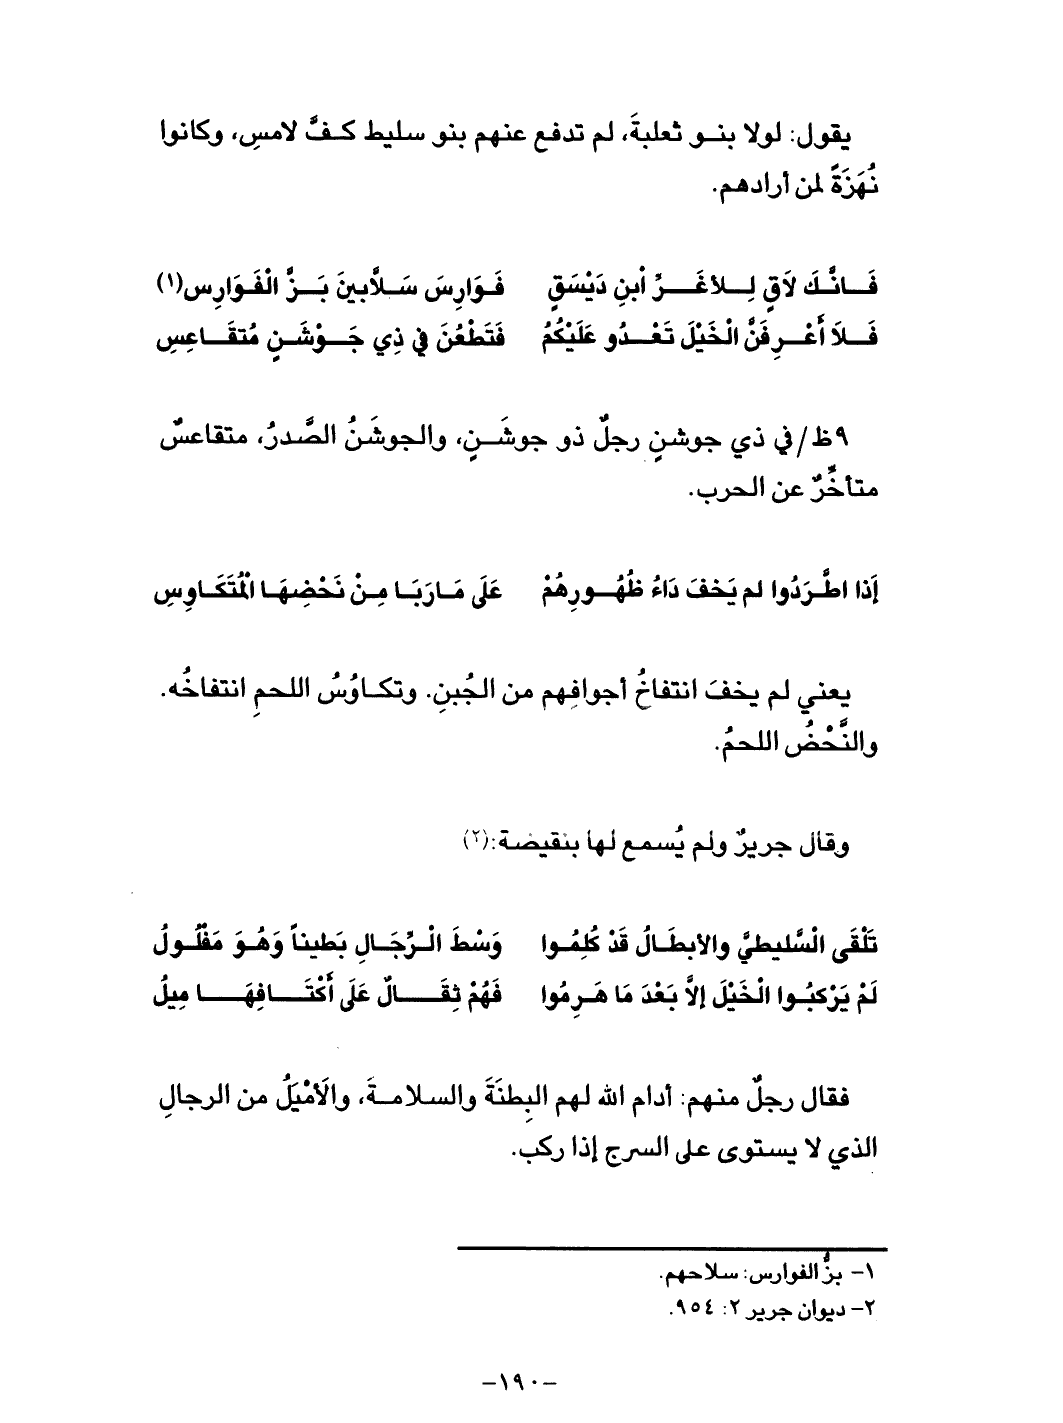 يقول: لولا بنو ثعلبةَ، لم تدفع عنهم بنو سليط كفَّ لامسٍ، وكانوا
نُهَزَةً لمن أرادهم.
فَانَّكَ لاَقٍ لِلاغَرِّ اْبنِ دَيْسَقٍ فَوَارِسَ سَلاَّبينَ بَزَّ الْفَوَارِس(١)
فَلاَ أَعْرِفَنَّ الْخَيْلَ تَعْدُو عَلَيْكُمُ فَتَطْعُنَ في ذِي جَوْشَنٍ مُتقَاعِسِ
٩ظ/في ذي جوشنٍ رجلٌ ذو جوشَنٍ، والجوشَنُ الصَّدرُ، متقاعسٌ
متأخِّرٌ عن الحرب.
إَذا اطَّرَدُوا لم يَخفَ دَاءُ ظُهُورِهُمْ عَلَى مَارَبَا مِنْ نَحْضِهَا الْمُتَكَاوِسِ
يعني لم يخفَ انتفاخُ أجوافِهم من الجُبنِ. وتكاوُسُ اللحمِ انتفاخُه.
والنَّحْضُ اللحمُ.
وقال جريرٌ ولم يُسمع لها بنقيضة:(٢)
تَلْقَى الْسَّليطيَّ والابطَالُ قَدْ كُلِمُوا وَسْطَ الْرِّجَالِ بَطيناً وَهُوَ مَفْلُولُ
لَمْ يَرْكبُوا الْخَيْلَ إلاَّ بَعْدَ مَا هَرِمُوا فَهُمْ ثِقَالٌ عَلَى أَكْتَافِهَا مِيلُ
فقال رجلٌ منهم: أدام الله لهم البِطنَةَ والسلامةَ، والَأمْيَلُ من الرجالِ
الذي لا يستوى على السرج إذا ركب.
١- بزُّ الفوارس: سلاحهم.
٢- ديوان جرير ٢: ٩٥٤.
-١٩٠-